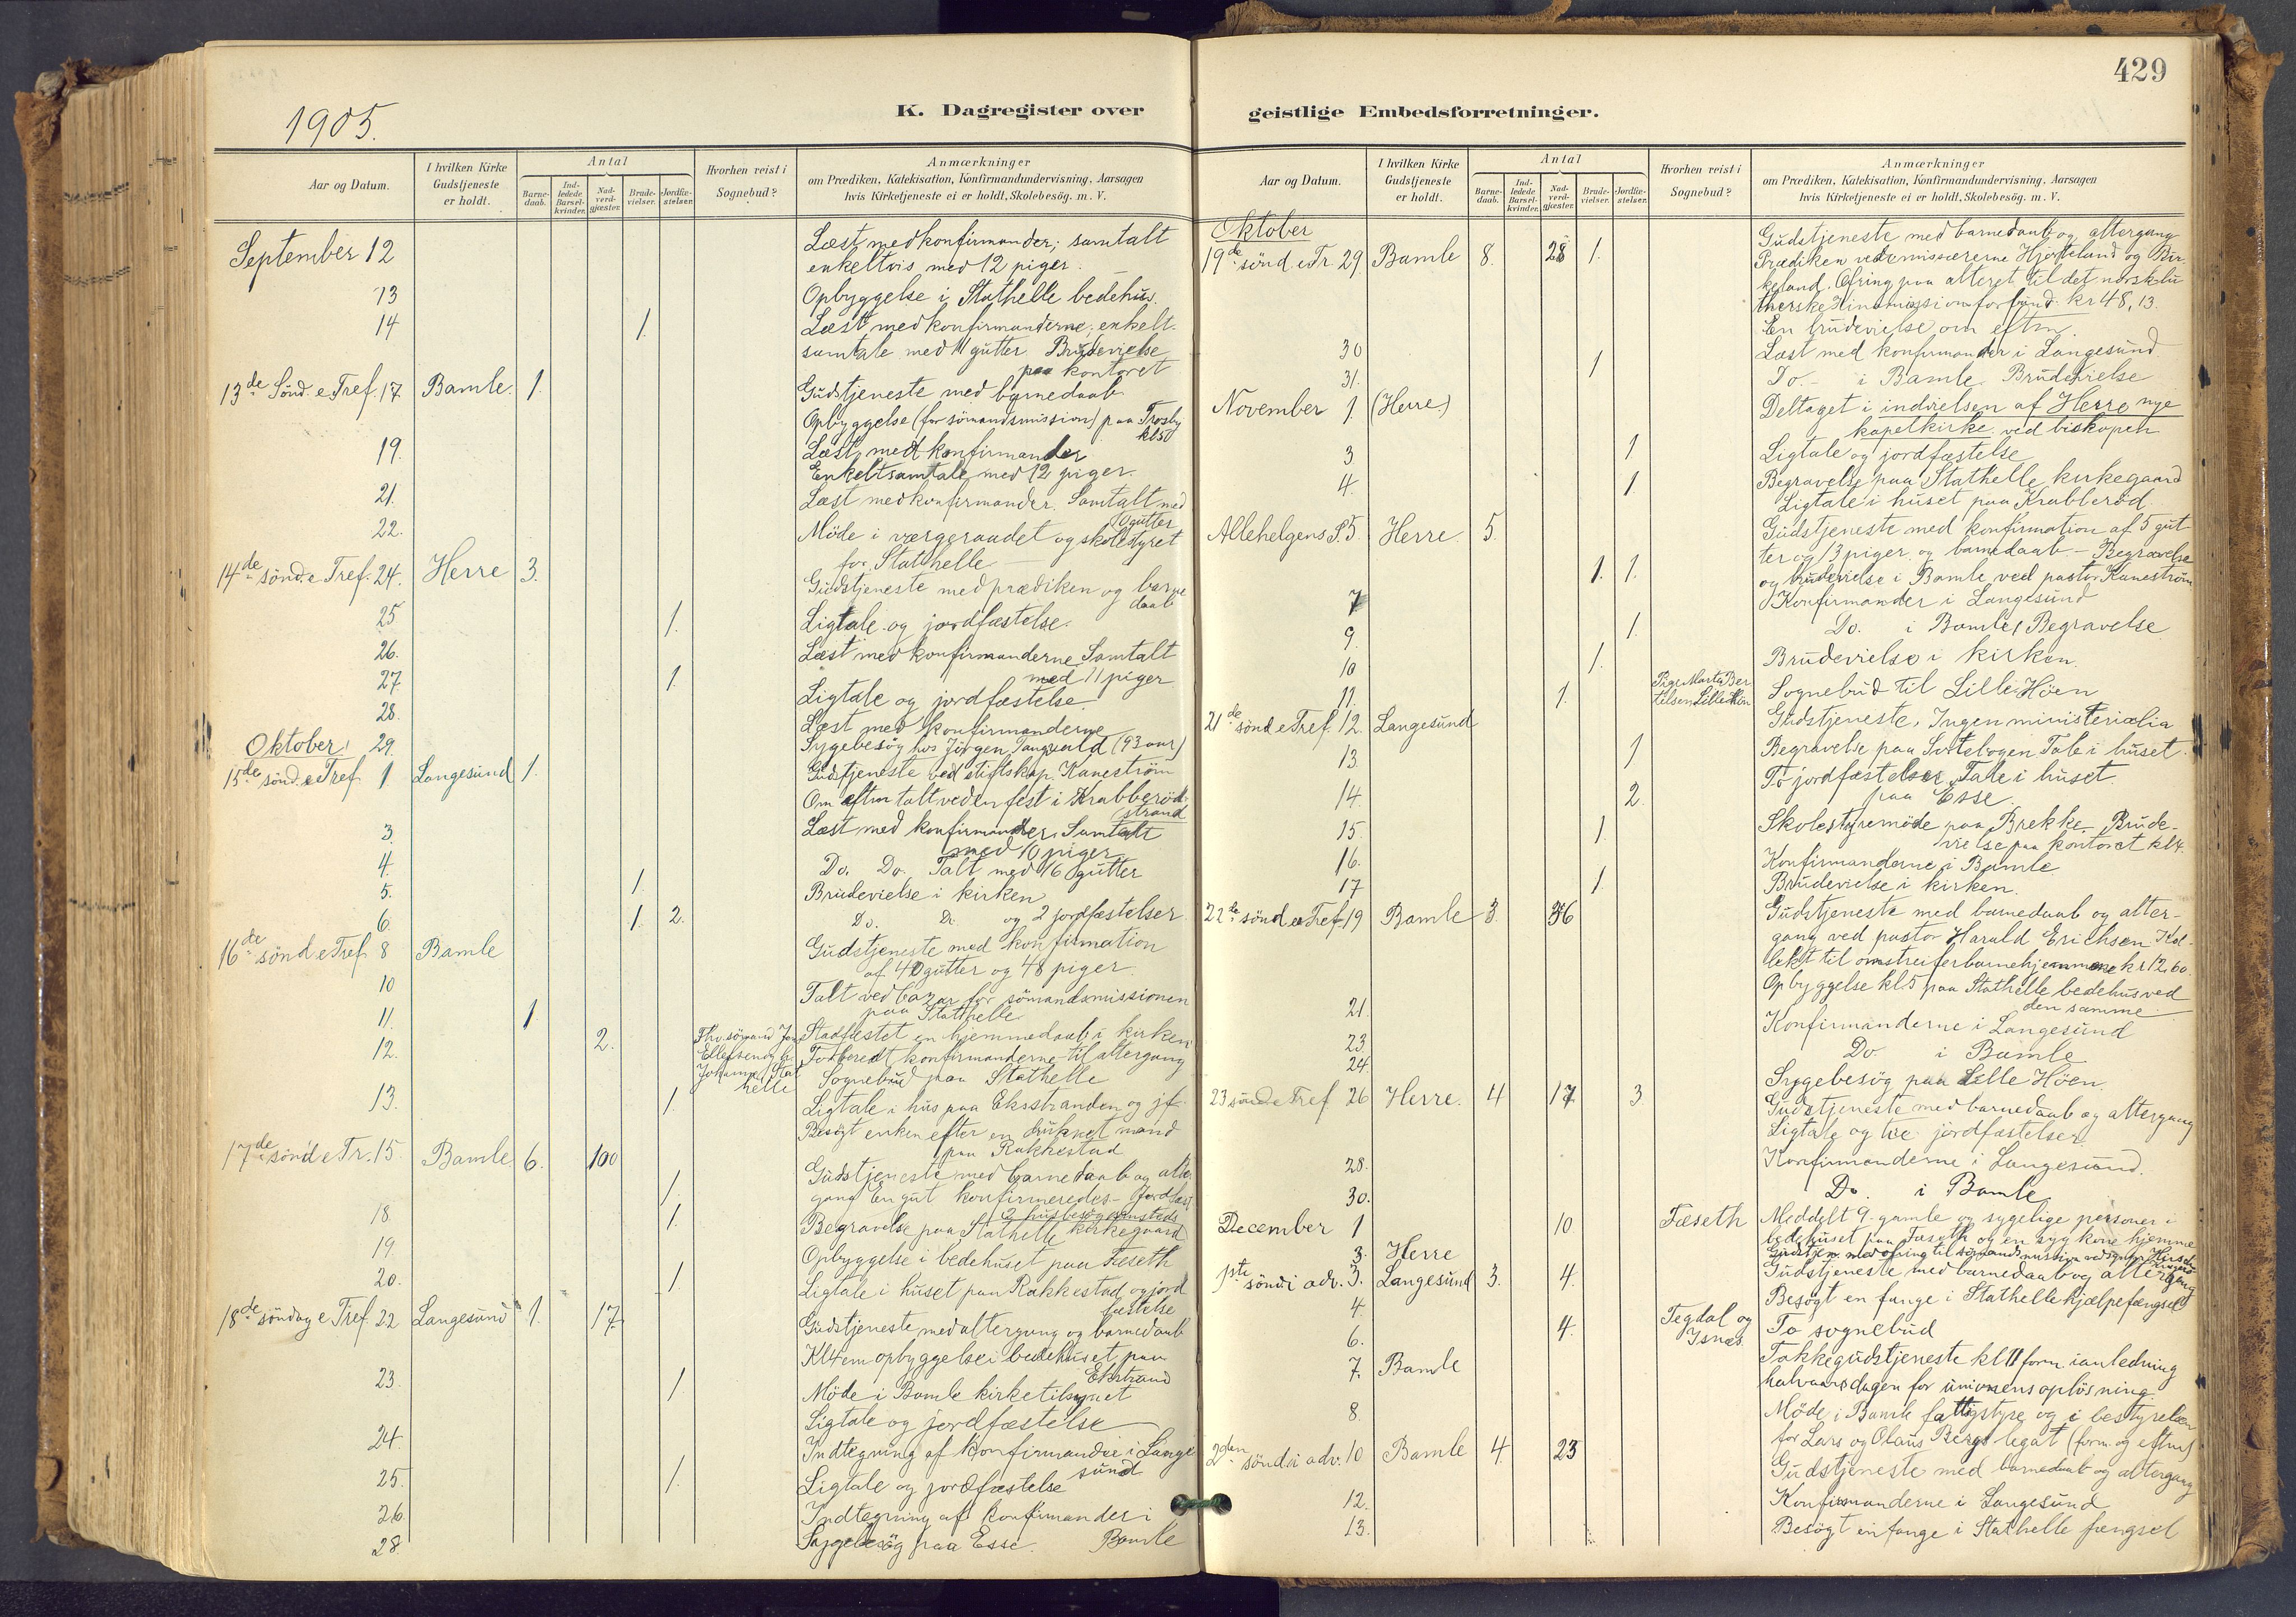 429
1905.
K. Dagregister over
geistlige Embedsforretninger.
Aar og Datum.
I hvilken Kirke
Gudstjeneste
er holdt.
Antal
Barne-
daab.
Ind-
ledede
Barsel-
kvinder.
Nad-
verd-
gjæster.
Brude-
vielser.
Jordfæ-
stelser.
Hvorhen reist i
Sognebud?
Anmærkninger
om Prædiken, Katekisation, Konfirmandundervisning, Aarsagen
hvis Kirketjeneste ei er holdt, Skolebesög. m. V.
September 12 Læst med konfirmander; samtalt
enkeltvis med 12 piger.
13 Opbyggelse i Stathelle bedehus.
14 1. Læst med konfirmanderne; enkelt-
samtale med 11 gutter Brudevielse
paa kontoret
13de Sönd. e Tref. 17. Bamle. 1. Gudstjeneste med barnedaab
Opbyggelse (for sömandsmission) paa Trosby
kl 5
19. Læst med konfirmander
Enkeltsamtale med 12 piger.
21. Læst med konfirmander. Samtalt med
10 gutter
22. Möde i værgeraadet og skolestyret
for Stathelle
14de sönd. e Tref. 24. Herre 3. Gudstjeneste med prædiken og barne
daab
25 1. Ligtale og jordfæstelse.
26. Læst med konfirmanderne Samtalt
med 11 piger
27. 1. Ligtale og jordfæstelse
28. Læst med konfirmanderne
Oktober 29. Sygebesög hos Jörgen Tangvald (93 aar)
15de sönd. e Tref. 1 Langesund 1. Gudstjeneste ved stiftskap. Kaneström
Om eftm talt ved en fest i Krabberöd
strand
3. Læst med konfirmander. Samtalt
med 10 piger
4. Do. Do. Talt med 16 gutter
5. 1. Brudevielse i kirken
6. 1. 2. Do. Do. og 2 jordfæstelser
16de sönd e Tref 8 Bamle Gudstjeneste med konfirmation
af 40 gutter og 48 piger.
10 Talt ved bazar for sömandsmissionen
paa Stathelle
11. 1. Stadfæstet en hjemmedaab i kirken
12. 2. Forberedt konfirmanderne til altergang
Sognebud paa Stathelle
helle
13. 1. Ligtale i hus paa Eksstranden og jf.
Besögt enken efter en druknet mand
paa Rakkestad
17de sönd e Tr. 15. Bamle. 6. 100 Gudstjeneste med barnedaab og alter
gang En gut konfirmeredes - Jordfæst
2 husbesög
18. 1. Begravelse paa Stathelle kirkegaard
19. Opbyggelse i bedehuset paa Fæseth
20. 1. Ligtale i huset paa Rakkestad og jord
fæstelse
18de söndag e Tref. 22 Langesund 1. 17. Gudstjeneste med altergang og barnedaab
Kl 4 em opbyggelse i bedehuset paa
Ekstrand
23. 1. Möde i Bamle kirketilsynet
Ligtale og jordfæstelse
24. Indtegning af konfirmander i Lange
sund
25. 1. Ligtale og jordfæstelse
26. Indtegning af konfirmander i
Bamle
28. Sygebesög paa Esse.
Aar og Datum.
I hvilken Kirke
Gudstjeneste
er holdt.
Antal
Barne-
daab.
Ind-
ledede
Barsel-
kvinder.
Nad-
verd-
gjæster.
Brude-
vielser.
Jordfæ-
stelser.
Hvorhen reist i
Sognebud?
Anmærkninger
om Prædiken, Katekisation, Konfirmandundervisning, Aarsagen
hvis Kirketjeneste ei er holdt, Skolebesög. m. V.
Oktober
19de sönd. e Tr. 29. Bamle 8. 28 1. Gudstjeneste med barnedaab og altergang
Prædiken ved emissærerne Hjorteland og Bir-
keland. Ofring paa alteret til det norsk lu
therske Kinamissionsforbund: kr 48,13.
En brudevielse om eftm.
30 Læst med konfirmander i Langesund
31. 1 Do. - i Bamle. Brudevielse
November 1. (Herre) Deltaget i indvielsen af Herre nye
kapelkirke ved biskopen
3 1 Ligtale og jordfæstelse
4. 1 Begravelse paa Stathelle kirkegaard
Ligtale i huset paa Krabberöd
Allehelgens S. 5. Herre. 5. Gudstjeneste med konfirmation af 5 gut
ter og 13 piger og barnedaab - Begravelse
1. 1. og brudevielse i Bamle ved pastor Kaneström
7 Konfirmander i Langesund
9. 1. Do. i Bamle, Begravelse
10 1. Brudevielse i kirken.
11. 1. Pige Marta Ber
telsen Lille Höen Sognebud til Lille Höen
21de sönd e Tref. 12. Langesund Gudstjeneste, Ingen ministerialia
13. 1 Begravelse paa Tale i huset
14. 2. To jordfæstelser. Tale i huset
paa Esse.
15. 1. Skolestyremöde paa Brekke. Brude-
vielse paa kontoret kl 4.
16. Konfirmanderne i Bamle
17 1. Brudevielse i kirken.
22de sönd e Tref 19 Bamle 3. 36 Gudstjeneste med barnedaab og alter-
gang ved pastor Harald Erichsen Kol-
lekt til omstreiferbarnehjemmene kr 12,60.
Opbyggelse kl 5 paa Stathelle bedehus ved
den samme
21. Konfirmanderne i Langesund
23. Do. i Bamle
24. Sygebesög paa Lille Höen.
23 sönd e Tref 26 Herre. 4 17 3. Gudstjeneste med barnedaab og altergang
Ligtale og tre jordfæstelser.
28. Konfirmanderne i Langesund.
30. Do. i Bamle
December 1 10. Fæseth Meddelt 9 gamle og sygelige personer i
bedehuset paa Fæseth og en syg kone hjemme
3. Herre
1ste sönd. i adv. 3. Langesund 3. 4. Gudstjeneste med barnedaab og altergang
4 Besögt en fange i Stathelle hjælpefængsel
6. 4. Tegdal og
Isnæs. To sognebud
7. Bamle Takkegudstjeneste kl 11 form. i anledning
halvaarsdagen for unionens oplösning.
8. Möde i Bamle fattigstyre og i bestyrelsen
for Lars og Olaus Bergs legat (form. og eftm)
2den sönd i adv. 10 Bamle 4. 23 Gudstjeneste med barnedaab og altergang
12. Konfirmanderne i Langesund
13. Besögt en fange i Stathelle fængsel